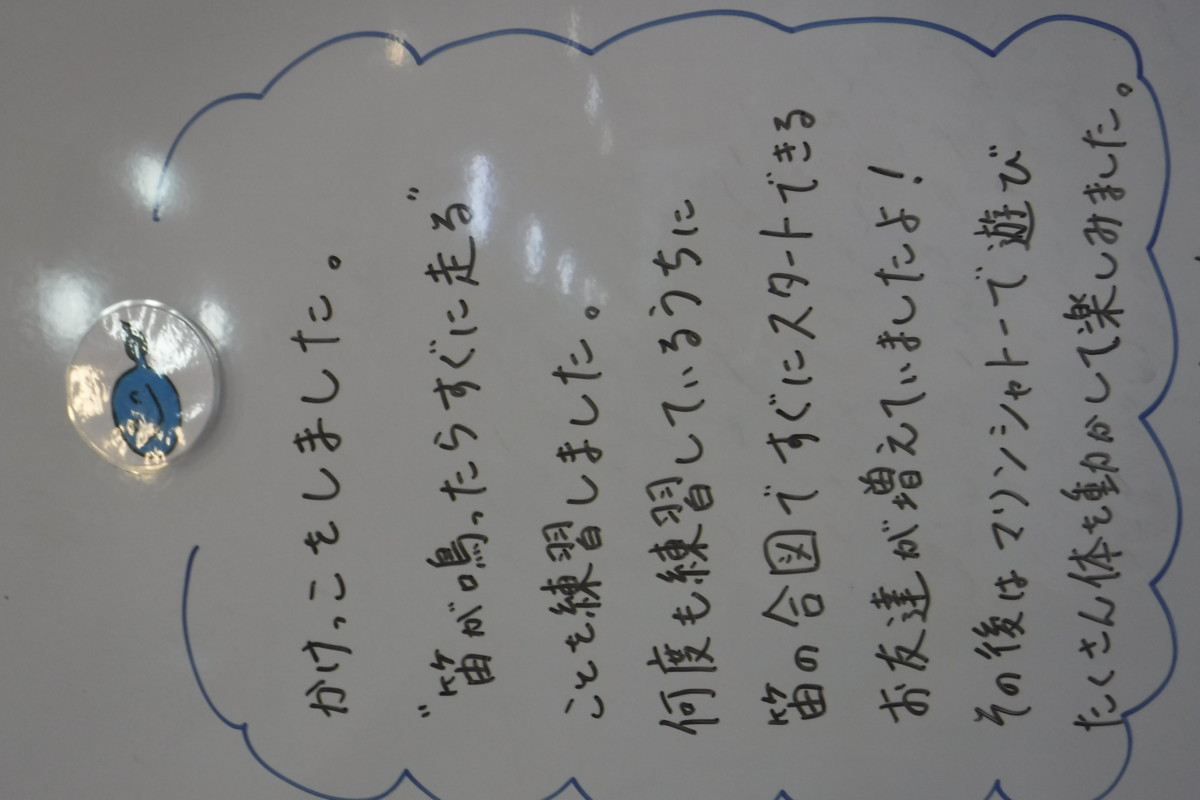 かけっこをしました。
"笛が鳴ったらすぐに走る"
ことを練習しました。
何度も練習しているうちに
笛の合図ですぐにスタートできる
お友達が増えていましたよ！
その後はマリンシャトーで遊び
たくさん体を動かして楽しみました。